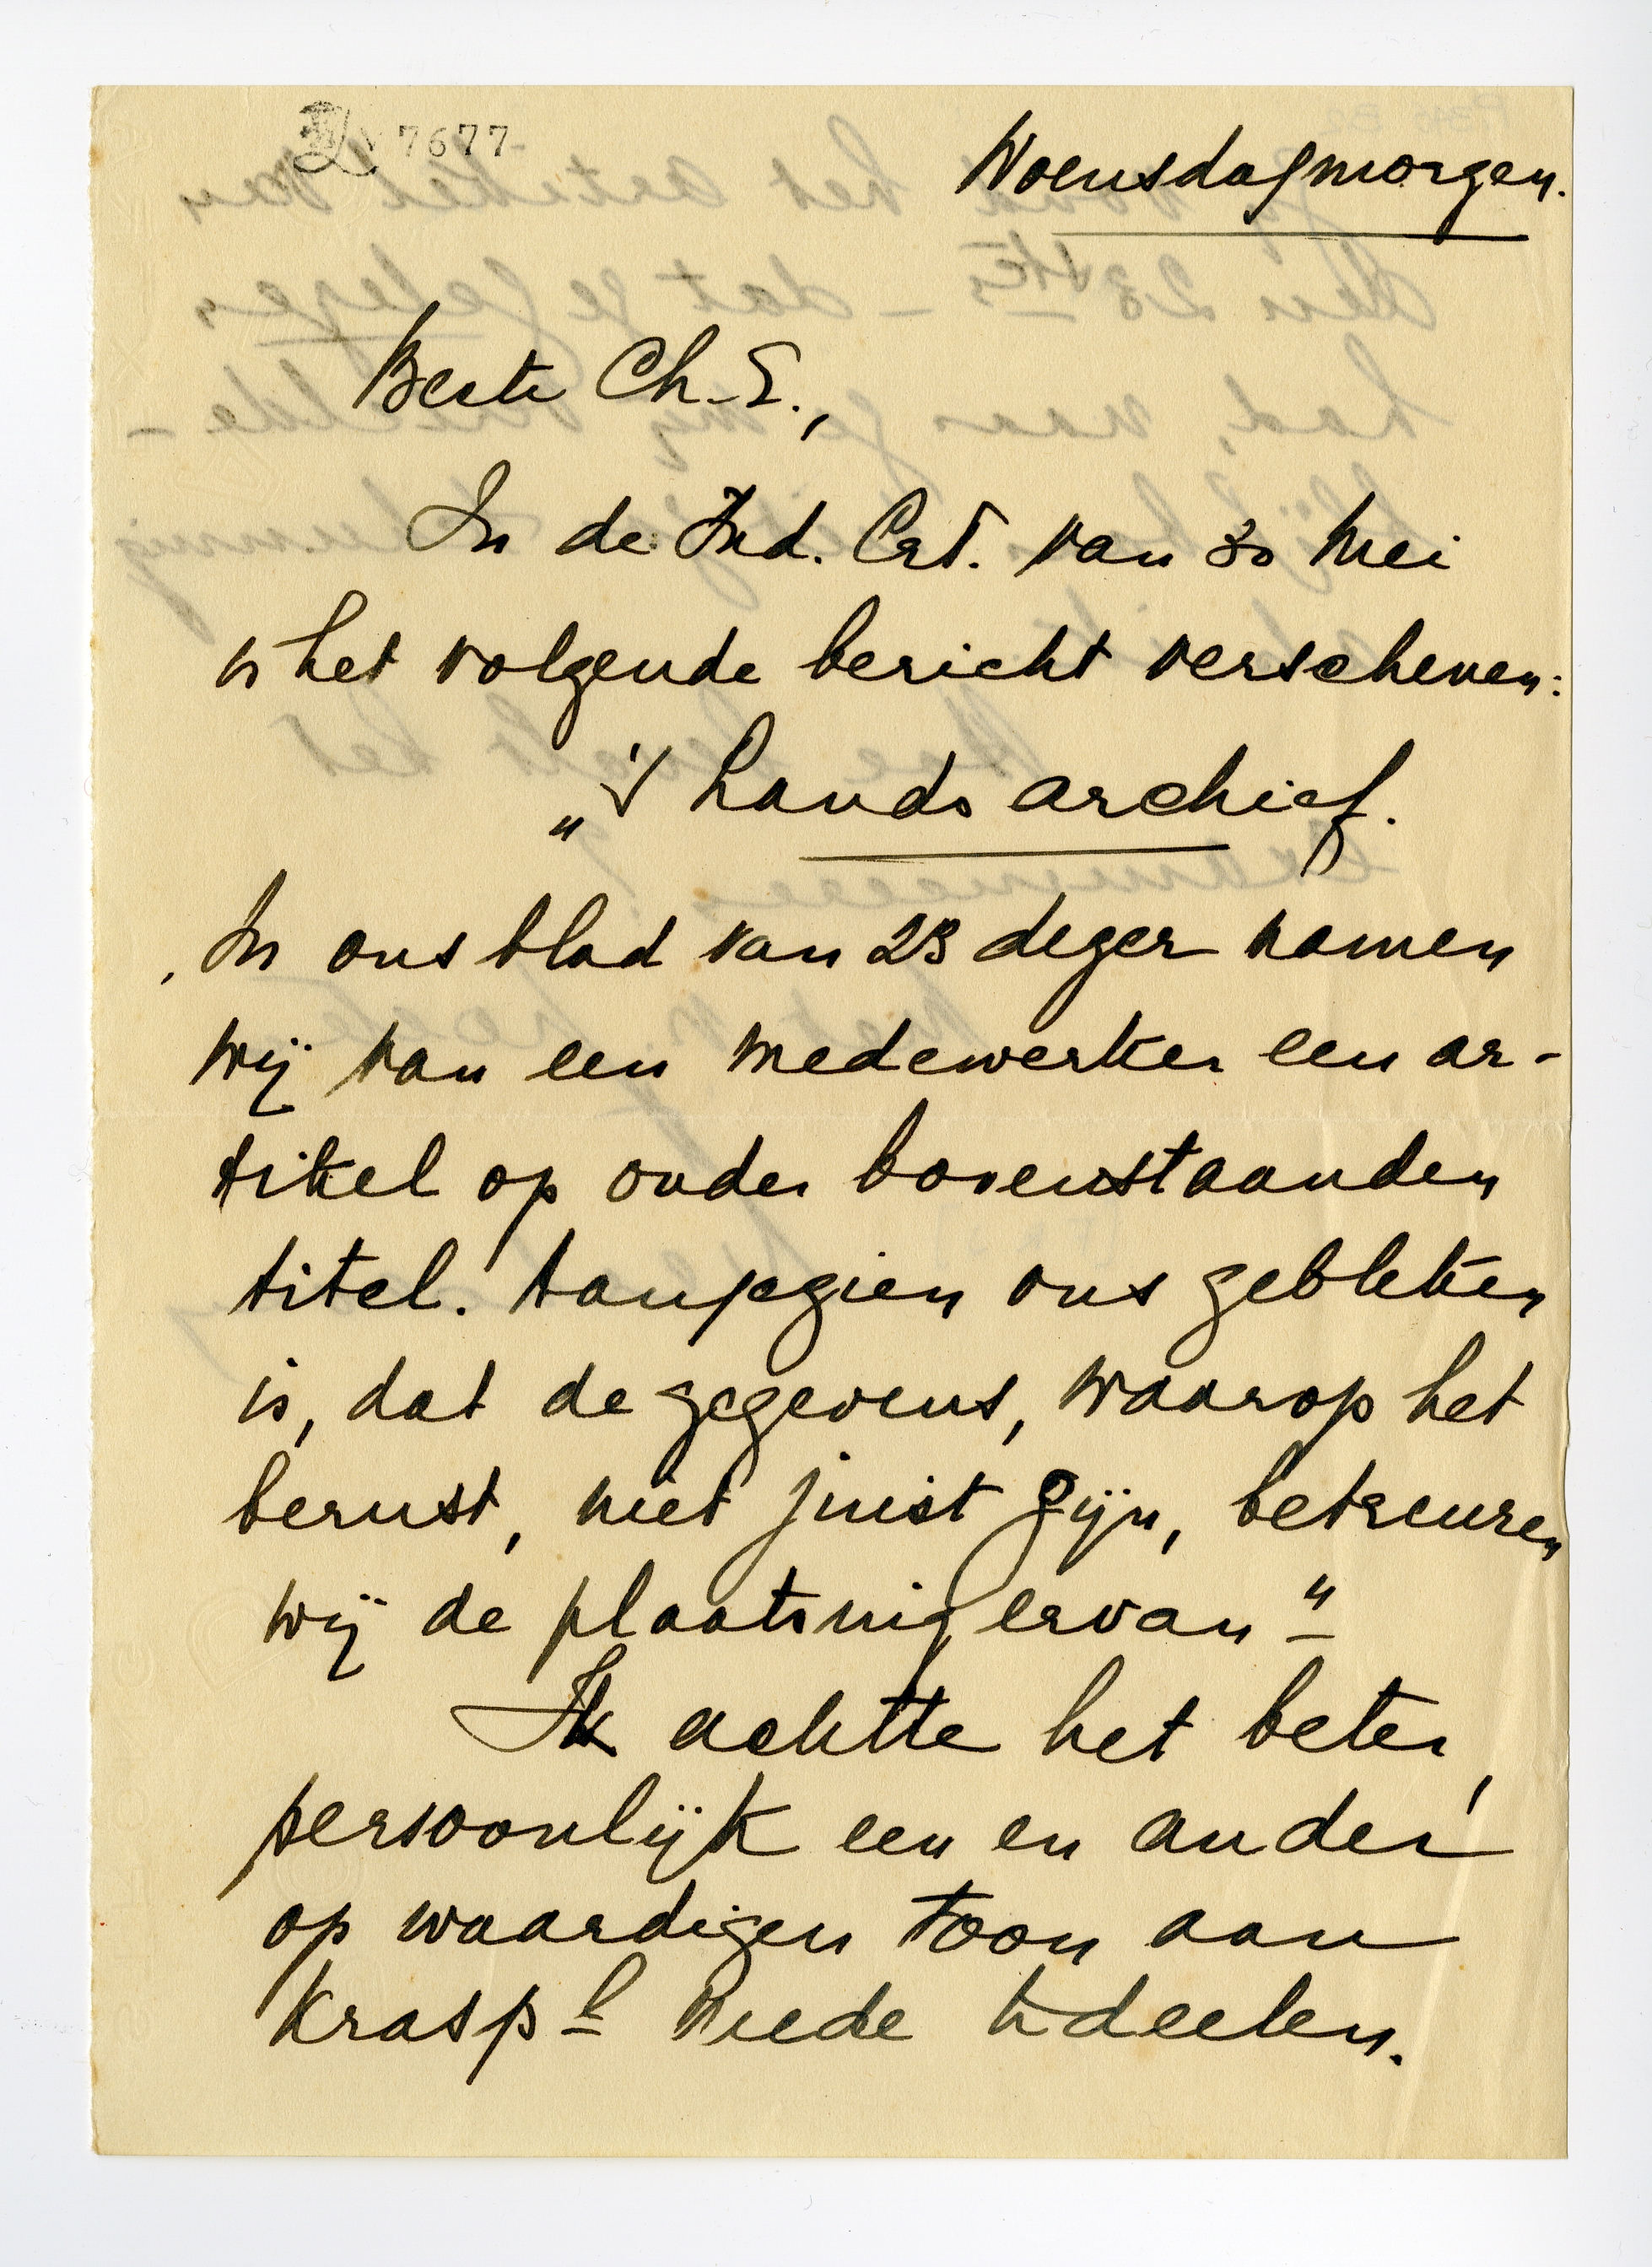 7677
Woensdagmorgen.
Beste Ch. E.,
In de Ind. Crt. van 30 Mei
is het volgende bericht verschenen:
„'s Lands archief.
In ons blad van 23 dezer namen
wij van een medewerker een ar-
tikel op onder bovenstaanden
titel. Aangezien ons gebleken
is, dat de gegevens, waarop het
berust, niet juist zijn, betreuren
wij de plaatsing ervan"
Ik achtte het beter,
persoonlijk een en ander
op waardigen toon aan
Krasp l mede te deelen.